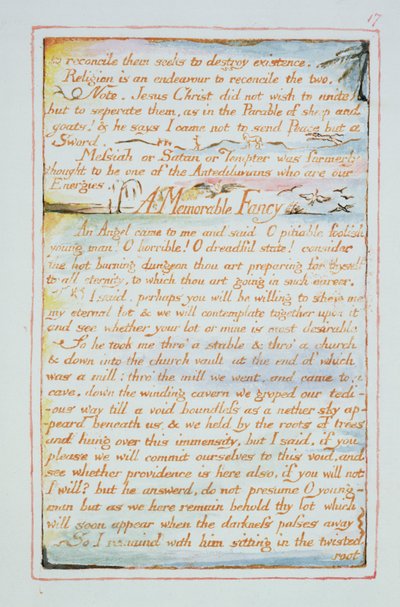 17
to reconcile them seeks to destroy existence.
Religion is an endeavour to reconcile the two.
Note. Jesus Christ did not wish to unite
but to seperate them, as in the Parable of sheep and
goats! & he says I came not to send Peace but a
Sword.
Messiah or Satan or Tempter was formerly
thought to be one of the Antediluvians who are our
Energies.
A Memorable Fancy
An Angel came to me and said O pitiable foolish
young man! O horrible! O dreadful state! consider
the hot burning dungeon thou art preparing for thyself
to all eternity, to which thou art going in such career.
I said. perhaps you will be willing to shew me
my eternal lot & we will contemplate together upon it
and see whether your lot or mine is most desirable
So he took me thro' a stable & thro' a church
& down into the church vault at the end of which
was a mill: thro' the mill we went, and came to a
cave, down the winding cavern we groped our tedi-
-ous way till a void boundless as a nether sky ap-
-peard beneath us, & we held by the roots of trees
and hung over this immensity, but I said, if you
please we will commit ourselves to this void, and
see whether providence is here also, if you will not
I will? but he answerd, do not presume O young-
man but as we here remain behold thy lot which
will soon appear when the darkness passes away
So I remaind with him sitting in the twisted
root